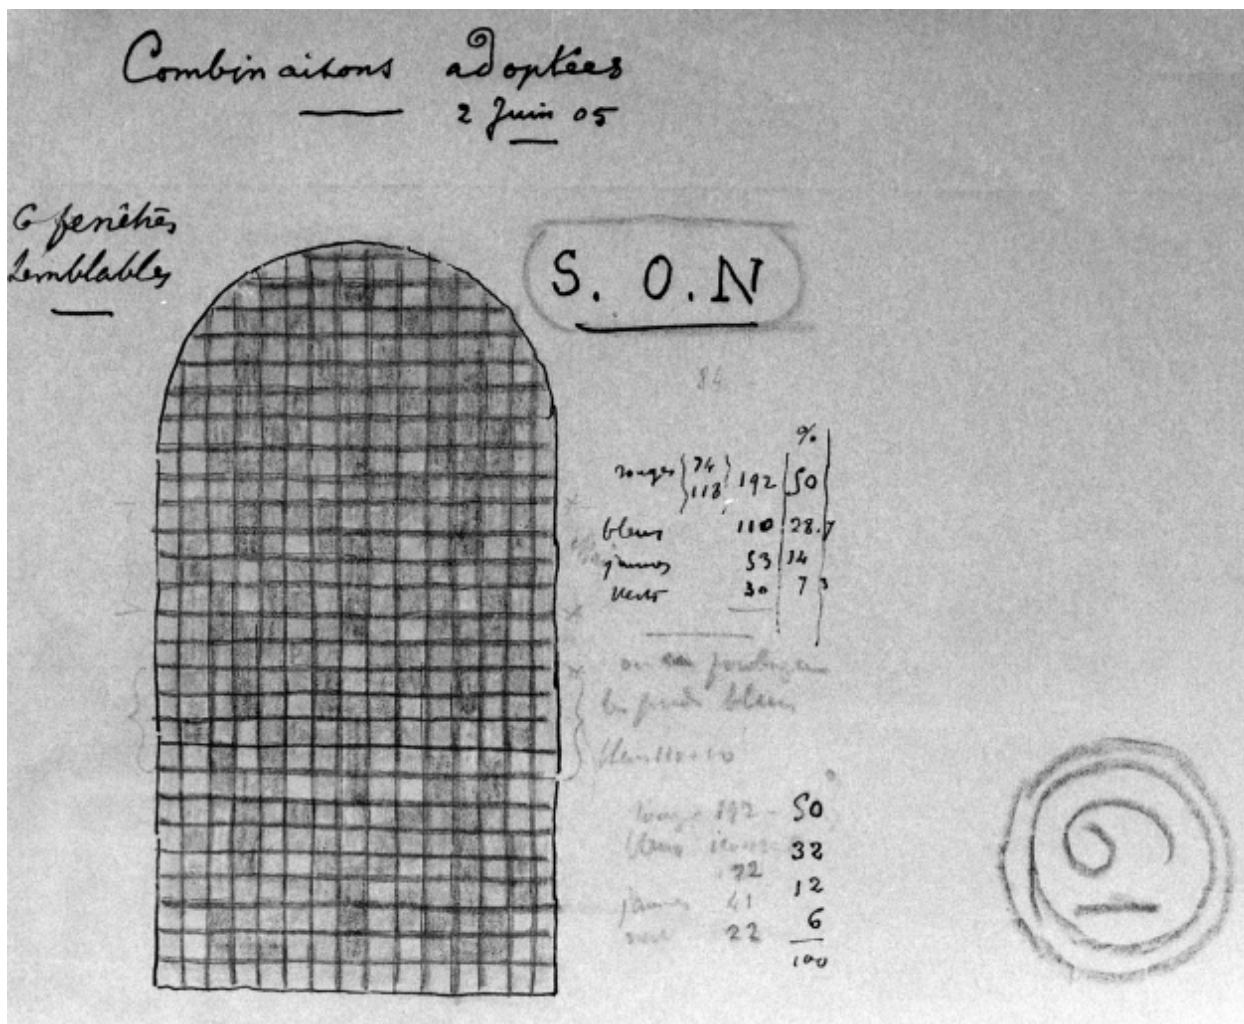 Combinaisons adoptées
2 Juin 05
6 fenêtres
semblables
S. O. N
84
%
rouges { 74 118 } 192 50
bleus 110 28.7
jaunes 53 14
verts 30 7 3
bleus
bleus 110+10
rouge 192 - 50
bleus 32
22
jaunes 41 12
vert 22 6
100